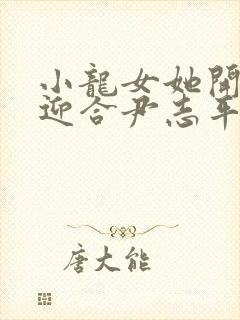 小龍女她開
迎合尹志平
唐大能